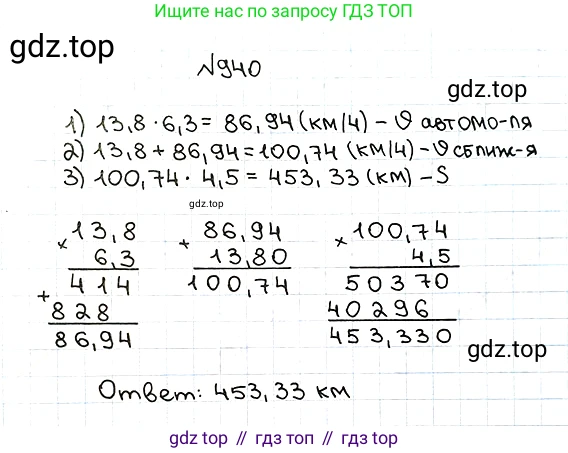 Ищите нас по запросу ГДЗ ТОП
gdz.top
№940
gdz.top
1) 13,8 · 6,3 = 86,94 (км/ч) – υ автомо-ля
2) 13,8 + 86,94 = 100,74 (км/ч) – υ сближ-я
3) 100,74 · 4,5 = 453,33 (км) – S
gdz.top
× 13,8
6,3
+ 414
828
86,94
+ 86,94
13,80
100,74
× 100,74
4,5
50370
40296
453,330
gdz.top
Ответ: 453,33 км
gdz.top // гдз топ // gdz.top